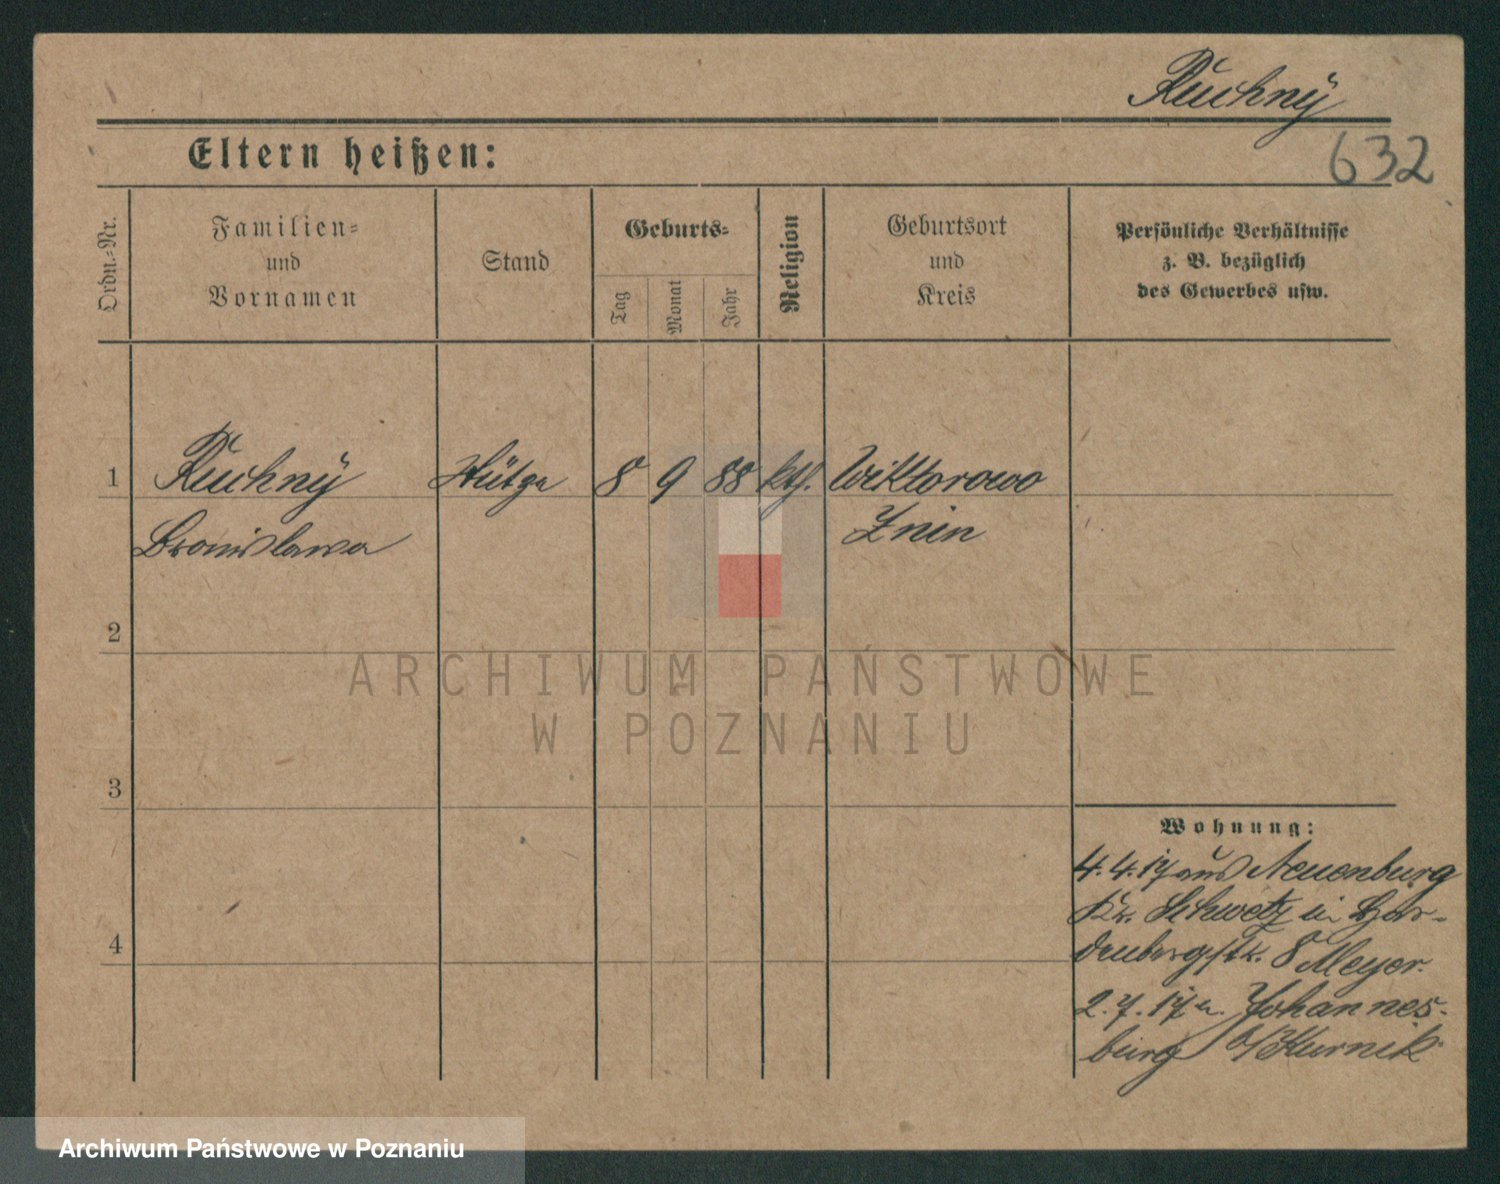 Ruchnÿ
632
Eltern heißen:
Ordn.-Nr.
Familien-
und
Vornamen
Stand
Geburts-
Tag
Monat
Jahr
Religion
Geburtsort
und
Kreis
Persönliche Verhältnisse
z. B. bezüglich
des Gewerbes usw.
1 Ruchnÿ 8 9 88 kth. Wiktorowo
Bronislawa Znin
2
ARCHIWUM PAŃSTWOWE
W POZNANIU
3
Wohnung:
4.4.17 aus Neuenburg
Kr. Schwetz in Har-
denbergstr. 8 Meyer.
2.7.17 n. Johannes-
burg b/Kurnik
4
Archiwum Państwowe w Poznaniu